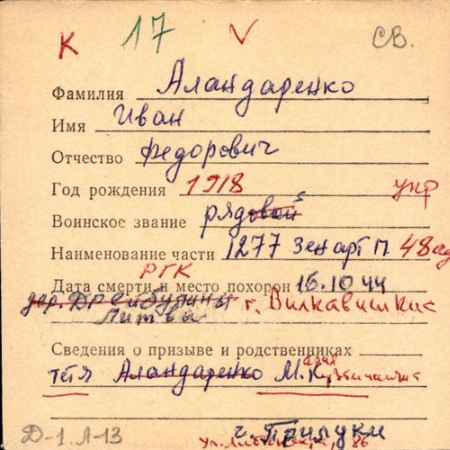 К 17 V СВ.
Фамилия Аландаренко
Имя Иван
Отчество Федорович
Год рождения 1918 укр
Воинское звание рядовой
Наименование части 1277 зен арт п. 48 ад
РГК
Дата смерти и место похорон 16.10.44
дер. г. Вилкавишкис
Литва
Сведения о призыве и родственниках
тётя Аландаренко М.
г. Прилуки
Д-1. Л-13 Ул. 86